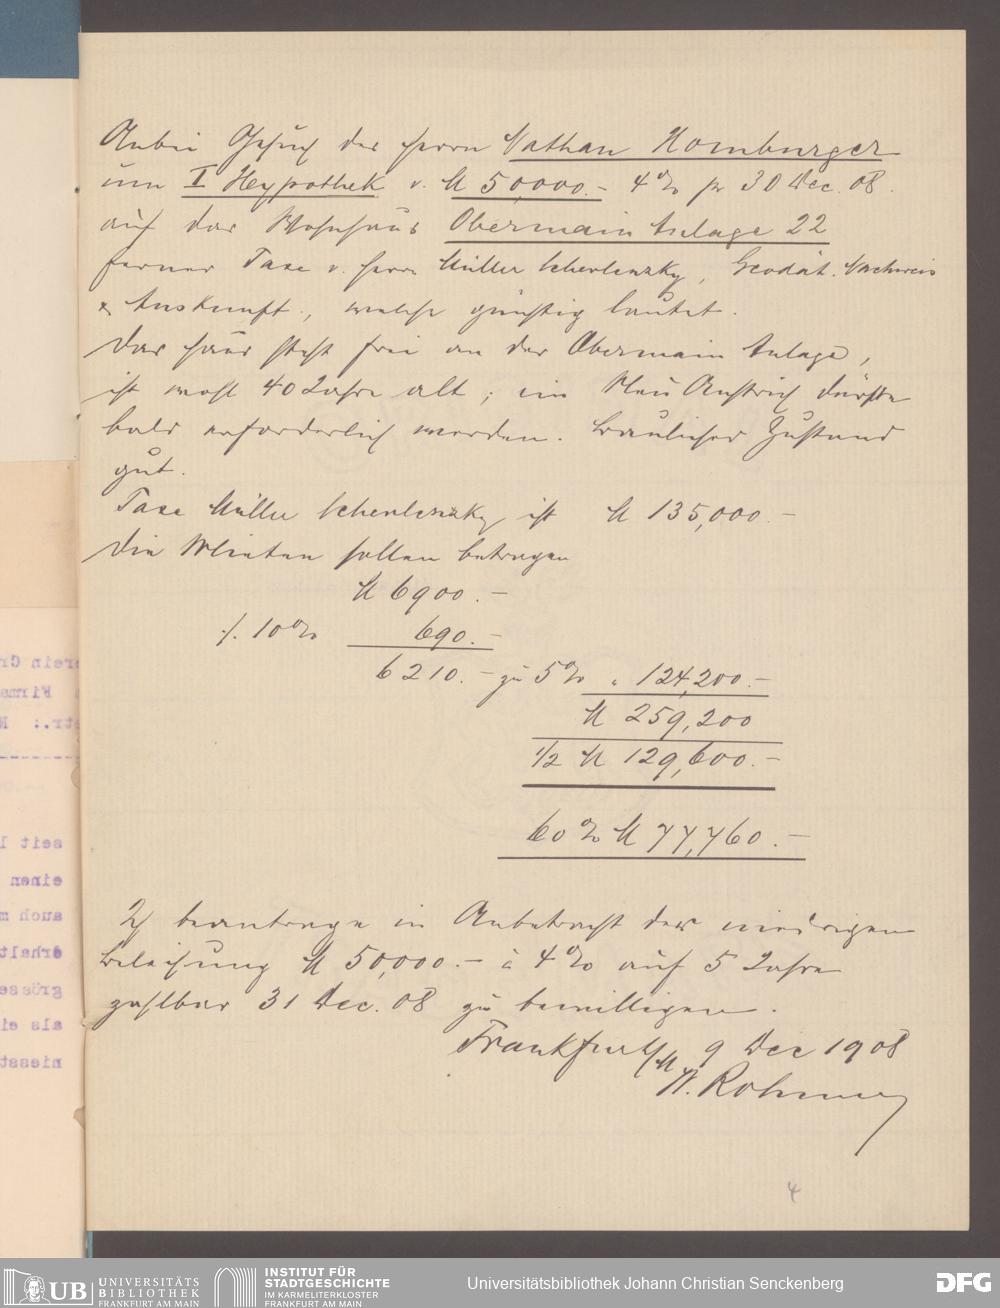 Anbei Gesuch des Herrn Nathan Homburger
um I Hypothek v. M 50,000.- 4% pr 30 Dec. 08.
auf das Wohnhaus Obermain Anlage 22
ferner Taxe v. Herrn Müller Scherlenzky, Geodät. Nachweis
& Auskunft, welche günstig lautet.
Das Haus steht frei an der Obermain Anlage,
ist wohl 40 Jahre alt; ein Neu Anstrich dürfte
bald erforderlich werden. Baulicher Zustand
gut.
Taxe Müller Scherlenzky ist M 135,000.-
Die Mieten sollen betragen
M 6900.-
./. 10% 690.-
6210.- zu 5% " 124,200.-
M 259,200
1/2 M 129,600.-
60% M 77,760.-
Ich beantrage in Anbetracht der niedrigen
Beleihung M 50,000.- à 4% auf 5 Jahre
zahlbar 31 Dec. 08 zu bewilligen.
Frankfurt a/M 9 Dec 1908
4
UB UNIVERSITÄTS
BIBLIOTHEK
FRANKFURT AM MAIN
INSTITUT FÜR
STADTGESCHICHTE
IM KARMELITERKLOSTER
FRANKFURT AM MAIN
Universitätsbibliothek Johann Christian Senckenberg
DFG